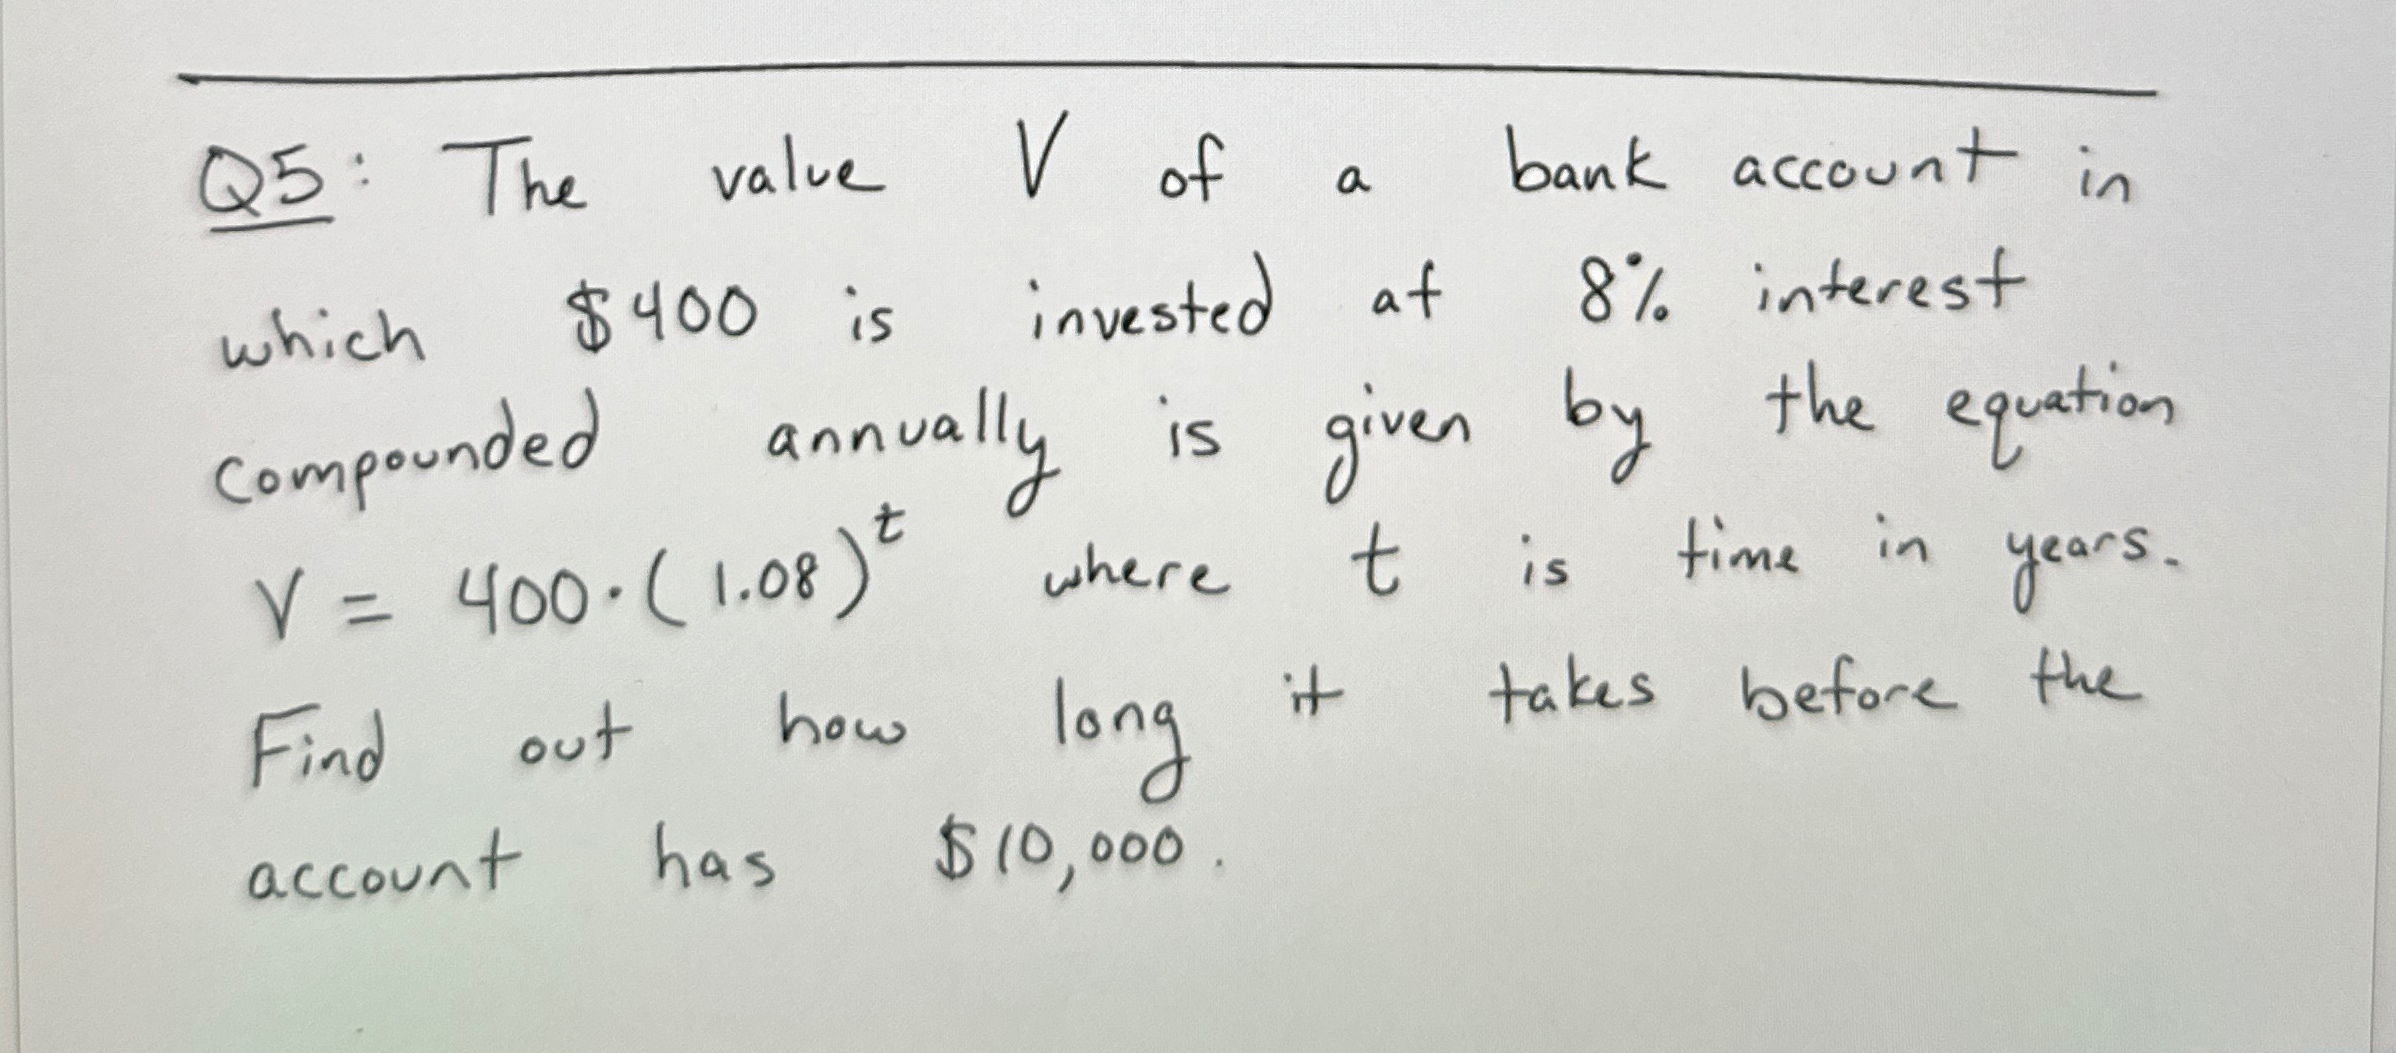 Q5: The value V of a bank account in
which $400 is invested at 8% interest
compounded annually is given by the equation
V = 400·(1.08)^t where t is time in years.
Find out how long it takes before the
account has $10,000.